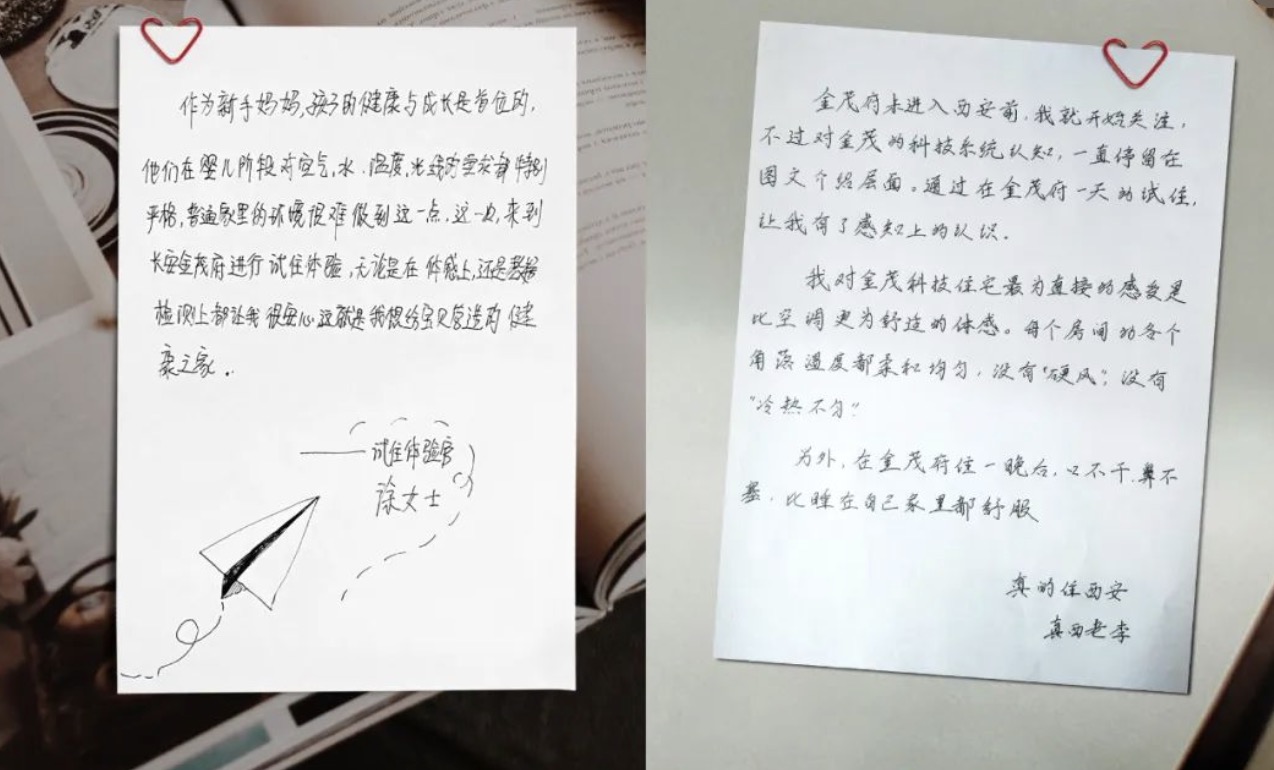 作为新手妈妈,孩子的健康与成长是首位的,
他们在婴儿阶段对空气,水.温度,光线的要求都特别
严格,普通家里的环境很难做到这一点,这一次,来到
长安金茂府进行试住体验,无论是在体感上,还是数据
检测上都让我很安心这就是我想给宝贝营造的健
康之家.
——试住体验官
徐女士
金茂府未进入西安前,我就开始关注,
不过对金茂的科技系统认知,一直停留在
图文介绍层面。通过在金茂府一天的试住,
让我有了感知上的认识.
我对金茂科技住宅最为直接的感受是
比空调更为舒适的体感。每个房间的各个
角落温度都柔和均匀,没有“硬风”,没有
“冷热不匀”
另外,在金茂府住一晚后,口不干.鼻不
塞.比睡在自己家里都舒服
真的住西安
真西老李